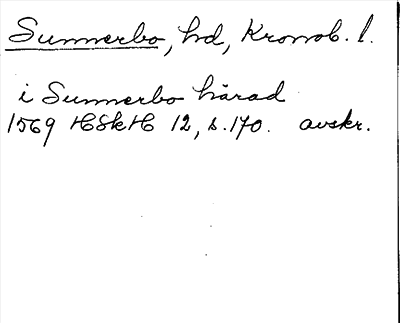 Sunnerbo, hd, Kronob. l.
i Sunnerbo härad
1569 HSkH 12, s. 170. avskr.